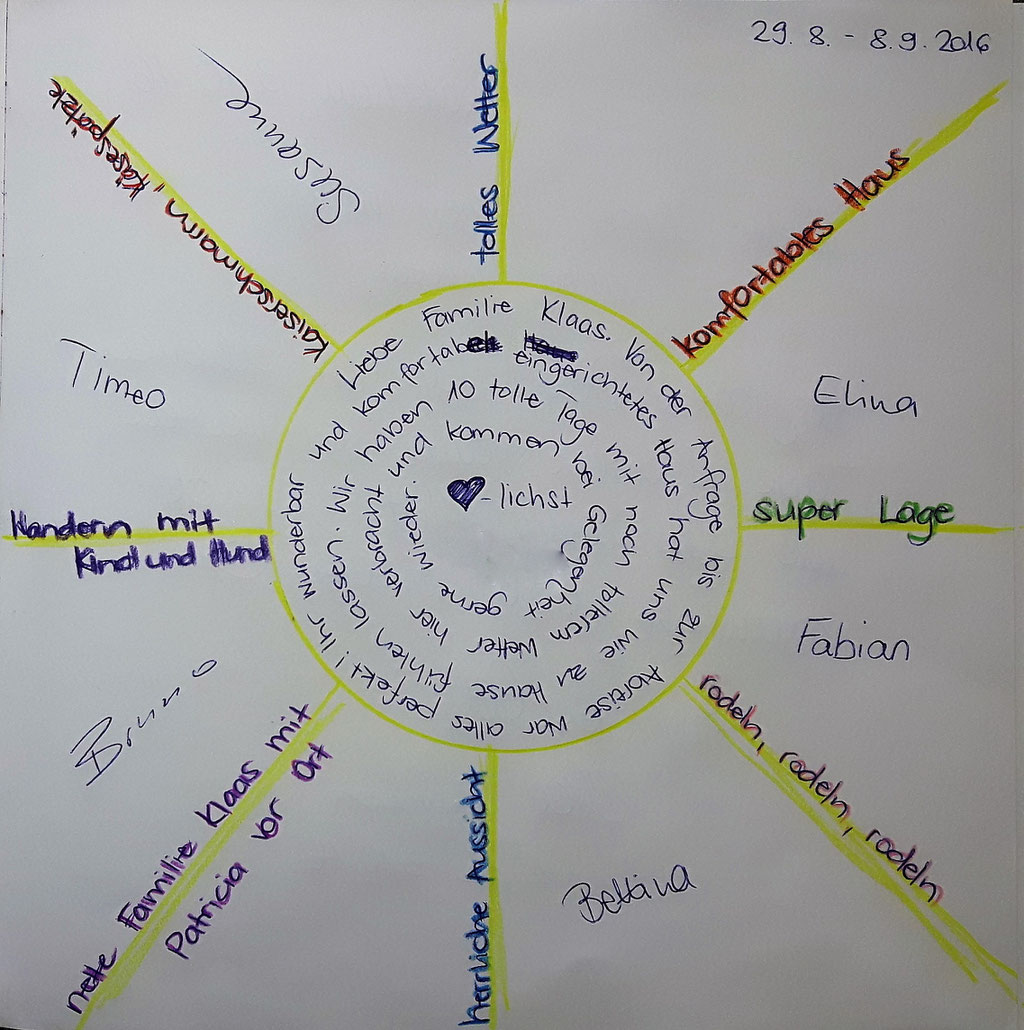 29. 8. - 8.9. 2016
tolles Wetter
komfortables Haus
Elina
super Lage
Fabian
rodeln, rodeln, rodeln
Bettina
herrliche Aussicht
nette Familie Klaas mit
Patricia vor Ort
Bruno
Wandern mit
Kind und Hund
Timeo
Kaiserschmarrn, Käsespätzle
Susanne
Liebe Familie Klaas. Von der Anfrage bis zur Abreise war alles perfekt! Ihr wunderbar und komfortabel eingerichtetes Haus hat uns wie zu Hause fühlen lassen. Wir haben 10 tolle Tage mit noch tollerem Wetter hier verbracht und kommen bei Gelegenheit gerne wieder.
♥-lichst